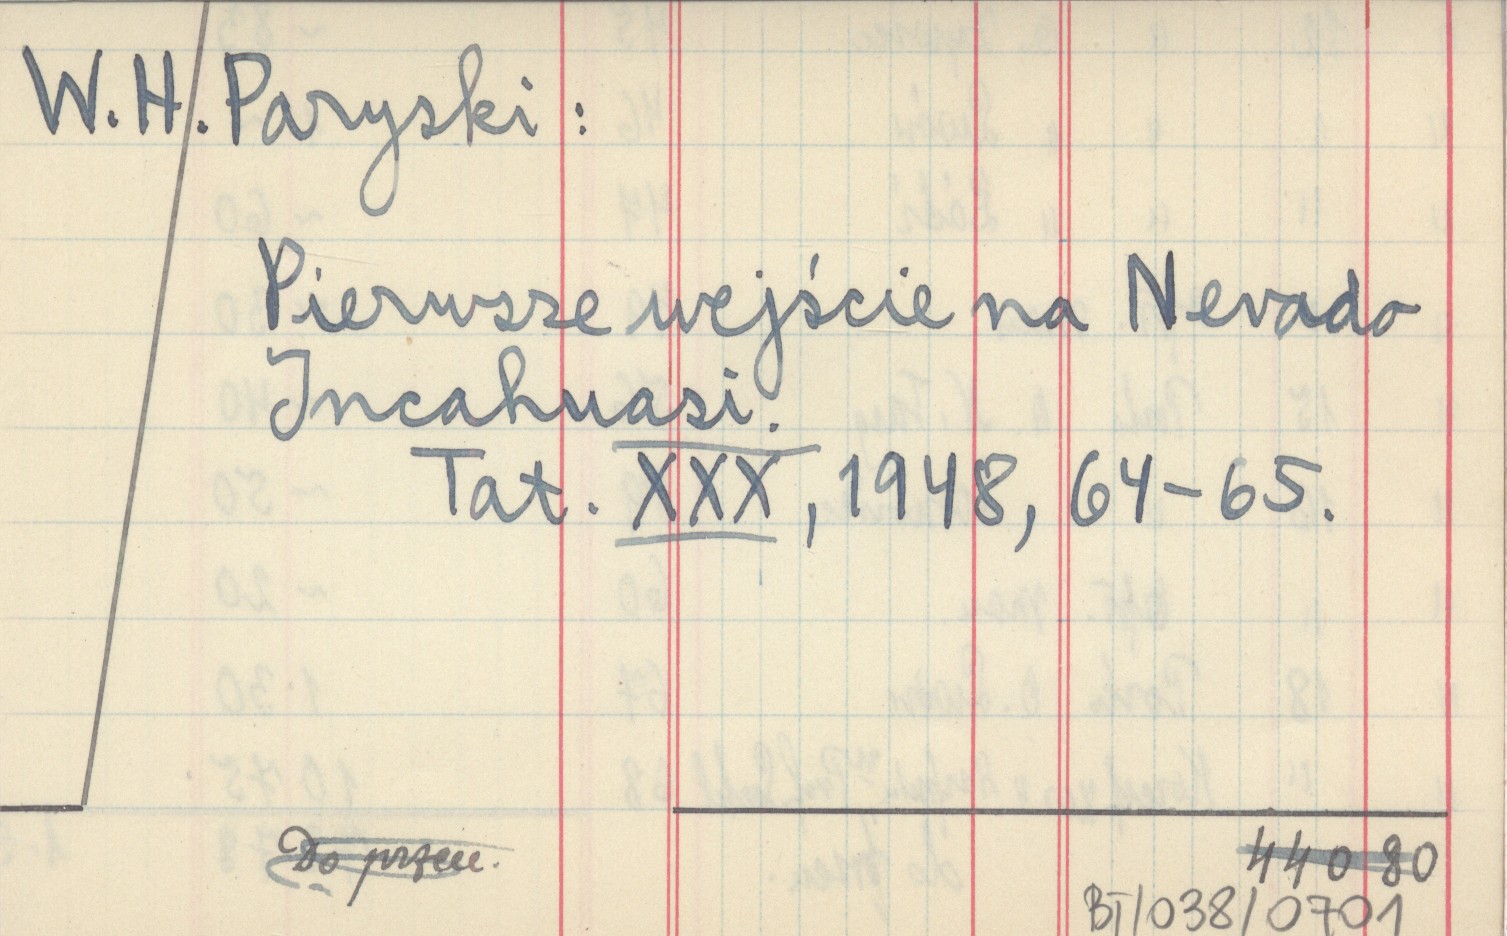 W.H. Paryski:
Pierwsze wejście na Nevado
Incahuasi.
Tat. XXX, 1948, 64-65.
Do przen.
44080
BT/038/0701